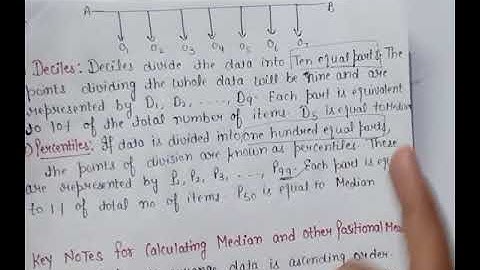 A B
O1 O2 O3 O4 O5 O6 O7
Deciles: Deciles divide the data into Ten equal parts. The
points dividing the whole data will be nine and are
represented by D1, D2, ....., D9. Each part is equivalent
to 10% of the total number of items. D5 is equal to Median
Percentiles: If data is divided into one hundred equal parts,
the points of division are known as percentiles. These
are represented by P1, P2, P3, ..., P99. Each part is
to 1% of total no of items. P50 is equal to Median
Key Notes for Calculating Median and Other Positional
data is ascending order.